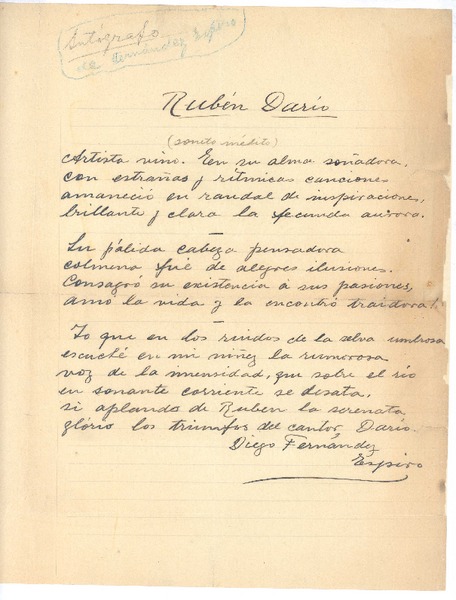 Autógrafo
de Fernández Espiro
Rubén Darío
(soneto inédito)
Artista vino. En su alma soñadora,
con estrañas y rítmicas canciones
amaneció en raudal de inspiraciones,
brillante y clara la fecunda aurora.
Su pálida cabeza pensadora
colmena fué de alegres ilusiones.
Consagró su existencia á sus pasiones,
amó la vida y la encontró traidora!
Yo que en los ruidos de la selva umbrosa
escuché en mi niñez la rumorosa
voz de la inmensidad, que sobre el río
en sonante corriente se desata,
si aplaudo de Ruben la serenata
glorio los triunfos del cantor Darío.
Diego Fernández
Espiro